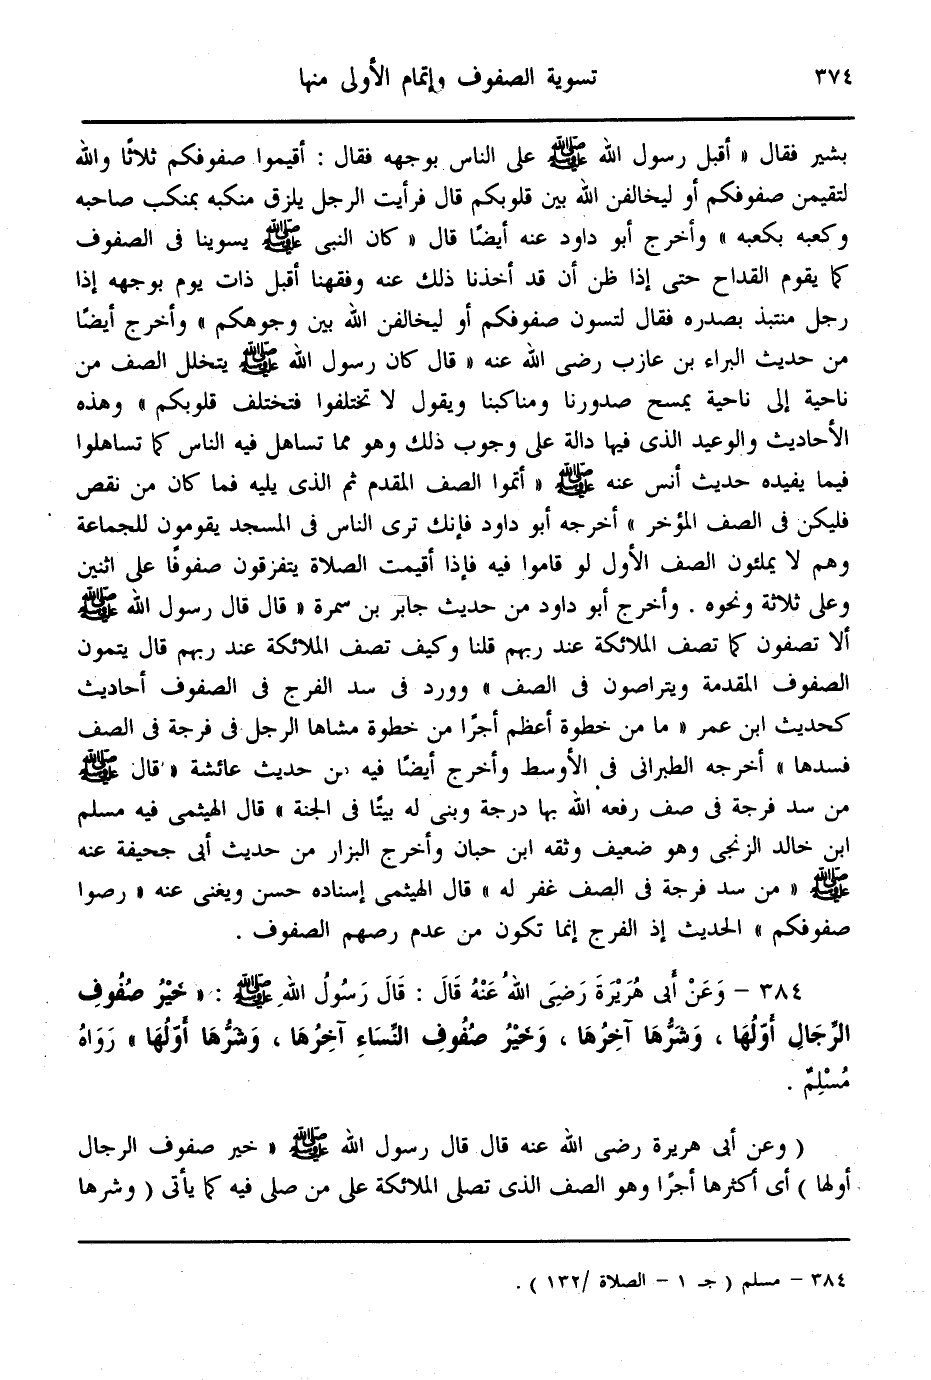 ٣٧٤ تسوية الصفوف وإتمام الأولى منها
بشير فقال « أقبل رسول الله ﷺ على الناس بوجهه فقال : أقيموا صفوفكم ثلاثًا والله
لتقيمن صفوفكم أو ليخالفن الله بين قلوبكم قال فرأيت الرجل يلزق منكبه بمنكب صاحبه
وكعبه بكعبه » وأخرج أبو داود عنه أيضًا قال « كان النبى ﷺ يسوينا فى الصفوف
كما يقوم القداح حتى إذا ظن أن قد أخذنا ذلك عنه وفقهنا أقبل ذات يوم بوجهه إذا
رجل منتبذ بصدره فقال لتسون صفوفكم أو ليخالفن الله بين وجوهكم » وأخرج أيضًا
من حديث البراء بن عازب رضى الله عنه « قال كان رسول الله ﷺ يتخلل الصف من
ناحية إلى ناحية يمسح صدورنا ومناكبنا ويقول لا تختلفوا فتختلف قلوبكم » وهذه
الأحاديث والوعيد الذى فيها دالة على وجوب ذلك وهو مما تساهل فيه الناس كما تساهلوا
فيما يفيده حديث أنس عنه ﷺ « أتموا الصف المقدم ثم الذى يليه فما كان من نقص
فليكن فى الصف المؤخر » أخرجه أبو داود فإنك ترى الناس فى المسجد يقومون للجماعة
وهم لا يملئون الصف الأول لو قاموا فيه فإذا أقيمت الصلاة يتفرقون صفوفًا على اثنين
وعلى ثلاثة ونحوه . وأخرج أبو داود من حديث جابر بن سمرة « قال قال رسول الله ﷺ
ألا تصفون كما تصف الملائكة عند ربهم قلنا وكيف تصف الملائكة عند ربهم قال يتمون
الصفوف المقدمة ويتراصون فى الصف » وورد فى سد الفرج فى الصفوف أحاديث
كحديث ابن عمر « ما من خطوة أعظم أجرًا من خطوة مشاها الرجل فى فرجة فى الصف
فسدها » أخرجه الطبرانى فى الأوسط وأخرج أيضًا فيه من حديث عائشة « قال ﷺ
من سد فرجة فى صف رفعه الله بها درجة وبنى له بيتًا فى الجنة » قال الهيثمى فيه مسلم
ابن خالد الزنجى وهو ضعيف وثقه ابن حبان وأخرج البزار من حديث أبى جحيفة عنه
ﷺ « من سد فرجة فى الصف غفر له » قال الهيثمى إسناده حسن ويغنى عنه « رصوا
صفوفكم » الحديث إذ الفرج إنما تكون من عدم رصهم الصفوف .
٣٨٤ – وَعَنْ أَبى هُرَيْرَةَ رَضِىَ اللهُ عَنْهُ قَالَ : قَالَ رَسُولُ اللهِ ﷺ : « خَيْرُ صُفُوفِ
الرِّجَالِ أَوّلُهَا ، وَشَرُّهَا آخِرُهَا ، وَخَيْرُ صُفُوفِ النِّسَاءِ آخِرُهَا ، وَشَرُّهَا أَوّلُهَا » رَوَاهُ
مُسْلِمٌ .
( وعن أبى هريرة رضى الله عنه قال قال رسول الله ﷺ « خير صفوف الرجال
أولها ) أى أكثرها أجرًا وهو الصف الذى تصلى الملائكة على من صلى فيه كما يأتى ( وشرها
٣٨٤ – مسلم ( جـ ١ – الصلاة /١٣٢ ) .